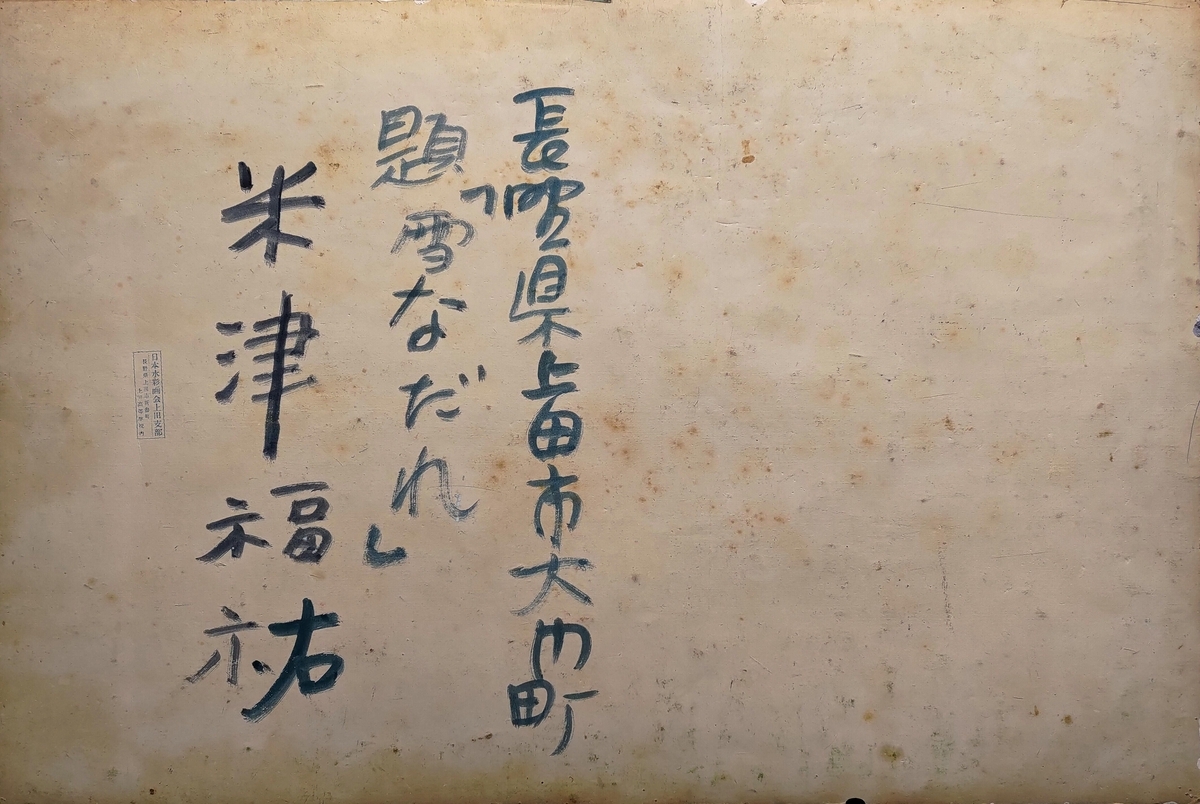 長野県上田市大内町
題「雪なだれ」
米津福祐
日本水彩画会上田支部